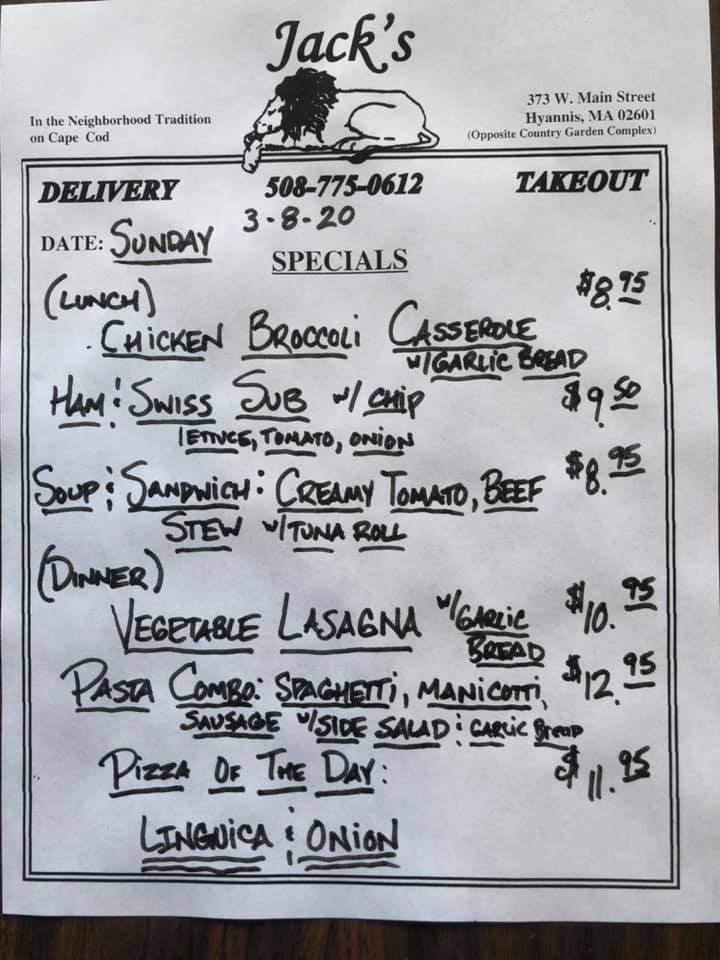 Jack's
In the Neighborhood Tradition
on Cape Cod
373 W. Main Street
Hyannis, MA 02601
(Opposite Country Garden Complex)
DELIVERY 508-775-0612 TAKEOUT
3-8-20
DATE: SUNDAY
SPECIALS
(LUNCH) $8.95
CHICKEN BROCCOLI CASSEROLE
W/GARLIC BREAD
HAM & SWISS SUB W/ CHIP $9.50
LETTUCE, TOMATO, ONION
SOUP & SANDWICH: CREAMY TOMATO, BEEF $8.95
STEW W/TUNA ROLL
(DINNER)
VEGETABLE LASAGNA W/GARLIC $10.95
BREAD
PASTA COMBO: SPAGHETTI, MANICOTTI, $12.95
SAUSAGE W/SIDE SALAD & GARLIC BREAD
PIZZA OF THE DAY: $11.95
LINGUICA & ONION